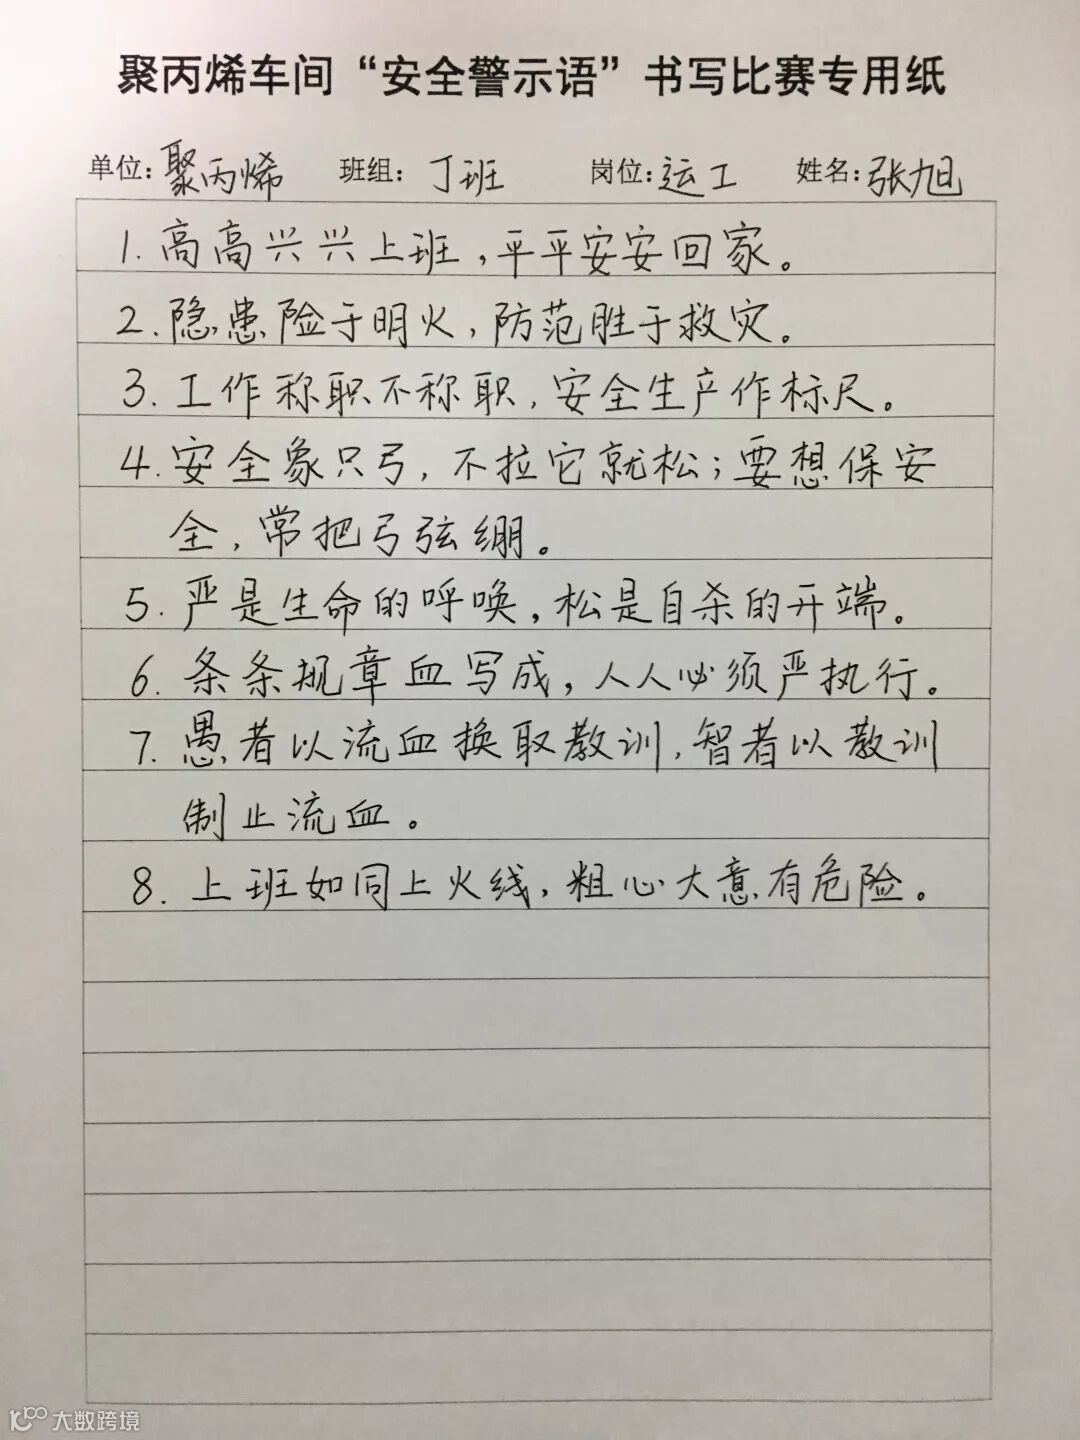 聚丙烯车间“安全警示语”书写比赛专用纸
单位:聚丙烯 班组:丁班 岗位:运工 姓名:张旭
1.高高兴兴上班,平平安安回家。
2.隐患险于明火,防范胜于救灾。
3.工作称职不称职,安全生产作标尺。
4.安全象只弓,不拉它就松;要想保安
全,常把弓弦绷。
5.严是生命的呼唤,松是自杀的开端。
6.条条规章血写成,人人必须严执行。
7.愚者以流血换取教训,智者以教训
制止流血。
8.上班如同上火线,粗心大意有危险。
大数跨境